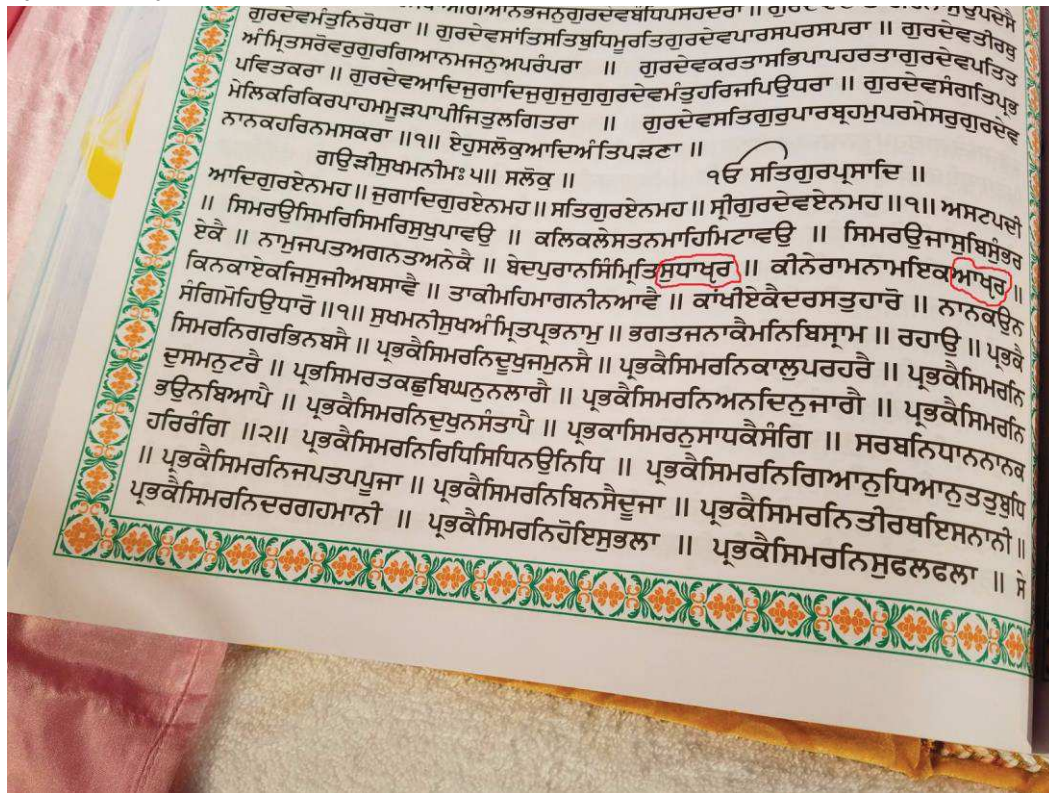 ਅਗਿਆਨਭੰਜਨੁਗੁਰਦੇਵਬੰਧਿਪਸਹੋਦਰਾ ॥
ਗੁਰਦੇਵਮੰਤੁਨਿਰੋਧਰਾ ॥ ਗੁਰਦੇਵਸਾਂਤਿਸਤਿਬੁਧਿਮੂਰਤਿਗੁਰਦੇਵਪਾਰਸਪਰਸਪਰਾ ॥ ਗੁਰਦੇਵਤੀਰਥੁ
ਅੰਮ੍ਰਿਤਸਰੋਵਰੁਗੁਰਗਿਆਨਮਜਨੁਅਪਰੰਪਰਾ ॥ ਗੁਰਦੇਵਕਰਤਾਸਭਿਪਾਪਹਰਤਾਗੁਰਦੇਵਪਤਿਤ
ਪਵਿਤਕਰਾ ॥ ਗੁਰਦੇਵਆਦਿਜੁਗਾਦਿਜੁਗੁਜੁਗੁਗੁਰਦੇਵਮੰਤੁਹਰਿਜਪਿਉਧਰਾ ॥ ਗੁਰਦੇਵਸੰਗਤਿਪ੍ਰਭ
ਮੇਲਿਕਰਿਕਿਰਪਾਹਮਮੂੜਪਾਪੀਜਿਤੁਲਗਿਤਰਾ ॥ ਗੁਰਦੇਵਸਤਿਗੁਰੁਪਾਰਬ੍ਰਹਮੁਪਰਮੇਸਰੁਗੁਰਦੇਵ
ਨਾਨਕਹਰਿਨਮਸਕਰਾ ॥੧॥ ਏਹੁਸਲੋਕੁਆਦਿਅੰਤਿਪੜਣਾ ॥
ਗਉੜੀਸੁਖਮਨੀਮਃ ੫॥ ਸਲੋਕੁ ॥ ੴ ਸਤਿਗੁਰਪ੍ਰਸਾਦਿ ॥
ਆਦਿਗੁਰਏਨਮਹ॥ ਜੁਗਾਦਿਗੁਰਏਨਮਹ॥ ਸਤਿਗੁਰਏਨਮਹ॥ ਸ੍ਰੀਗੁਰਦੇਵਏਨਮਹ॥੧॥ ਅਸਟਪਦੀ
॥ ਸਿਮਰਉਸਿਮਰਿਸਿਮਰਿਸੁਖੁਪਾਵਉ ॥ ਕਲਿਕਲੇਸਤਨਮਾਹਿਮਿਟਾਵਉ ॥ ਸਿਮਰਉਜਾਸੁਬਿਸੁੰਭਰ
ਏਕੈ ॥ ਨਾਮੁਜਪਤਅਗਨਤਅਨੇਕੈ ॥ ਬੇਦਪੁਰਾਨਸਿੰਮ੍ਰਿਤਿਸੁਧਾਖੵਰ ॥ ਕੀਨੇਰਾਮਨਾਮਇਕਆਖੵਰ ॥
ਕਿਨਕਾਏਕਜਿਸੁਜੀਅਬਸਾਵੈ ॥ ਤਾਕੀਮਹਿਮਾਗਨੀਨਆਵੈ ॥ ਕਾਂਖੀਏਕੈਦਰਸਤੁਹਾਰੋ ॥ ਨਾਨਕਉਨ
ਸੰਗਿਮੋਹਿਉਧਾਰੋ ॥੧॥ ਸੁਖਮਨੀਸੁਖਅੰਮ੍ਰਿਤਪ੍ਰਭਨਾਮੁ ॥ ਭਗਤਜਨਾਕੈਮਨਿਬਿਸ੍ਰਾਮ ॥ ਰਹਾਉ ॥ ਪ੍ਰਭਕੈ
ਸਿਮਰਨਿਗਰਭਿਨਬਸੈ ॥ ਪ੍ਰਭਕੈਸਿਮਰਨਿਦੂਖੁਜਮੁਨਸੈ ॥ ਪ੍ਰਭਕੈਸਿਮਰਨਿਕਾਲੁਪਰਹਰੈ ॥ ਪ੍ਰਭਕੈਸਿਮਰਨਿ
ਦੁਸਮਨੁਟਰੈ ॥ ਪ੍ਰਭਸਿਮਰਤਕਛੁਬਿਘਨੁਨਲਾਗੈ ॥ ਪ੍ਰਭਕੈਸਿਮਰਨਿਅਨਦਿਨੁਜਾਗੈ ॥ ਪ੍ਰਭਕੈਸਿਮਰਨਿ
ਭਉਨਬਿਆਪੈ ॥ ਪ੍ਰਭਕੈਸਿਮਰਨਿਦੁਖੁਨਸੰਤਾਪੈ ॥ ਪ੍ਰਭਕਾਸਿਮਰਨੁਸਾਧਕੈਸੰਗਿ ॥ ਸਰਬਨਿਧਾਨਨਾਨਕ
ਹਰਿਰੰਗਿ ॥੨॥ ਪ੍ਰਭਕੈਸਿਮਰਨਿਰਿਧਿਸਿਧਿਨਉਨਿਧਿ ॥ ਪ੍ਰਭਕੈਸਿਮਰਨਿਗਿਆਨੁਧਿਆਨੁਤਤੁਬੁਧਿ
॥ ਪ੍ਰਭਕੈਸਿਮਰਨਿਜਪਤਪਪੂਜਾ ॥ ਪ੍ਰਭਕੈਸਿਮਰਨਿਬਿਨਸੈਦੂਜਾ ॥ ਪ੍ਰਭਕੈਸਿਮਰਨਿਤੀਰਥਇਸਨਾਨੀ ॥
ਪ੍ਰਭਕੈਸਿਮਰਨਿਦਰਗਹਮਾਨੀ ॥ ਪ੍ਰਭਕੈਸਿਮਰਨਿਹੋਇਸੁਭਲਾ ॥ ਪ੍ਰਭਕੈਸਿਮਰਨਿਸੁਫਲਫਲਾ ॥ ਸੇ